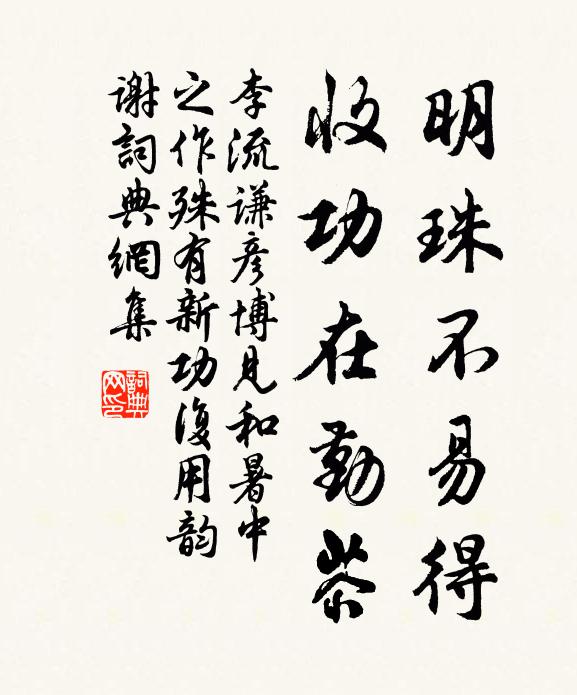 明珠不易得
收功在勤
李流謙彥博見和暑中
之作殊有新功復用韵
謝詞典網集
詞典
网印